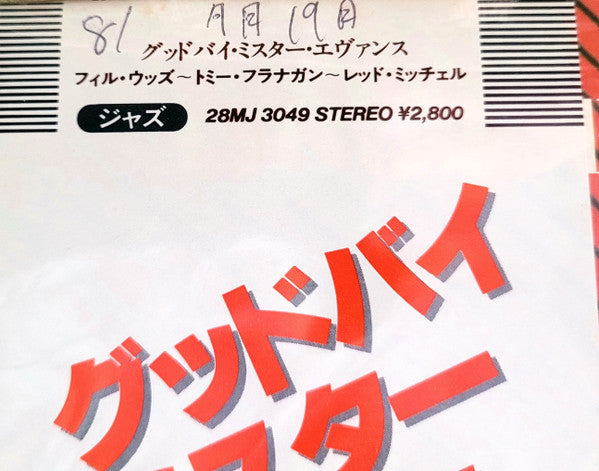 81 9月19日
グッドバイ・ミスター・エヴァンス
フィル・ウッズ～トミー・フラナガン～レッド・ミッチェル
ジャズ 28MJ 3049 STEREO ¥2,800
グッドバイ
スター